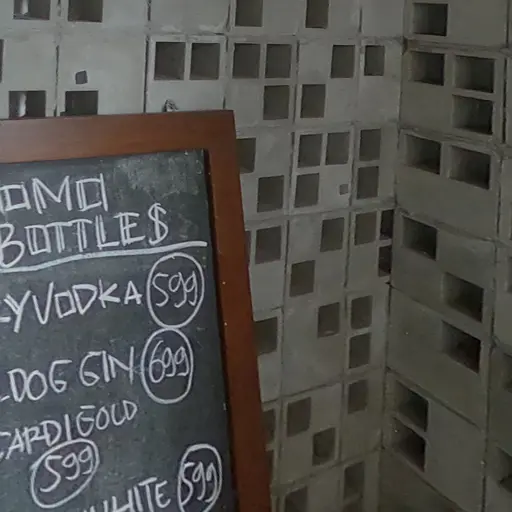 OMO
BOTTLE$
YVODKA 599
LDOG GIN 699
CARDIGOLD
599
WHITE 599